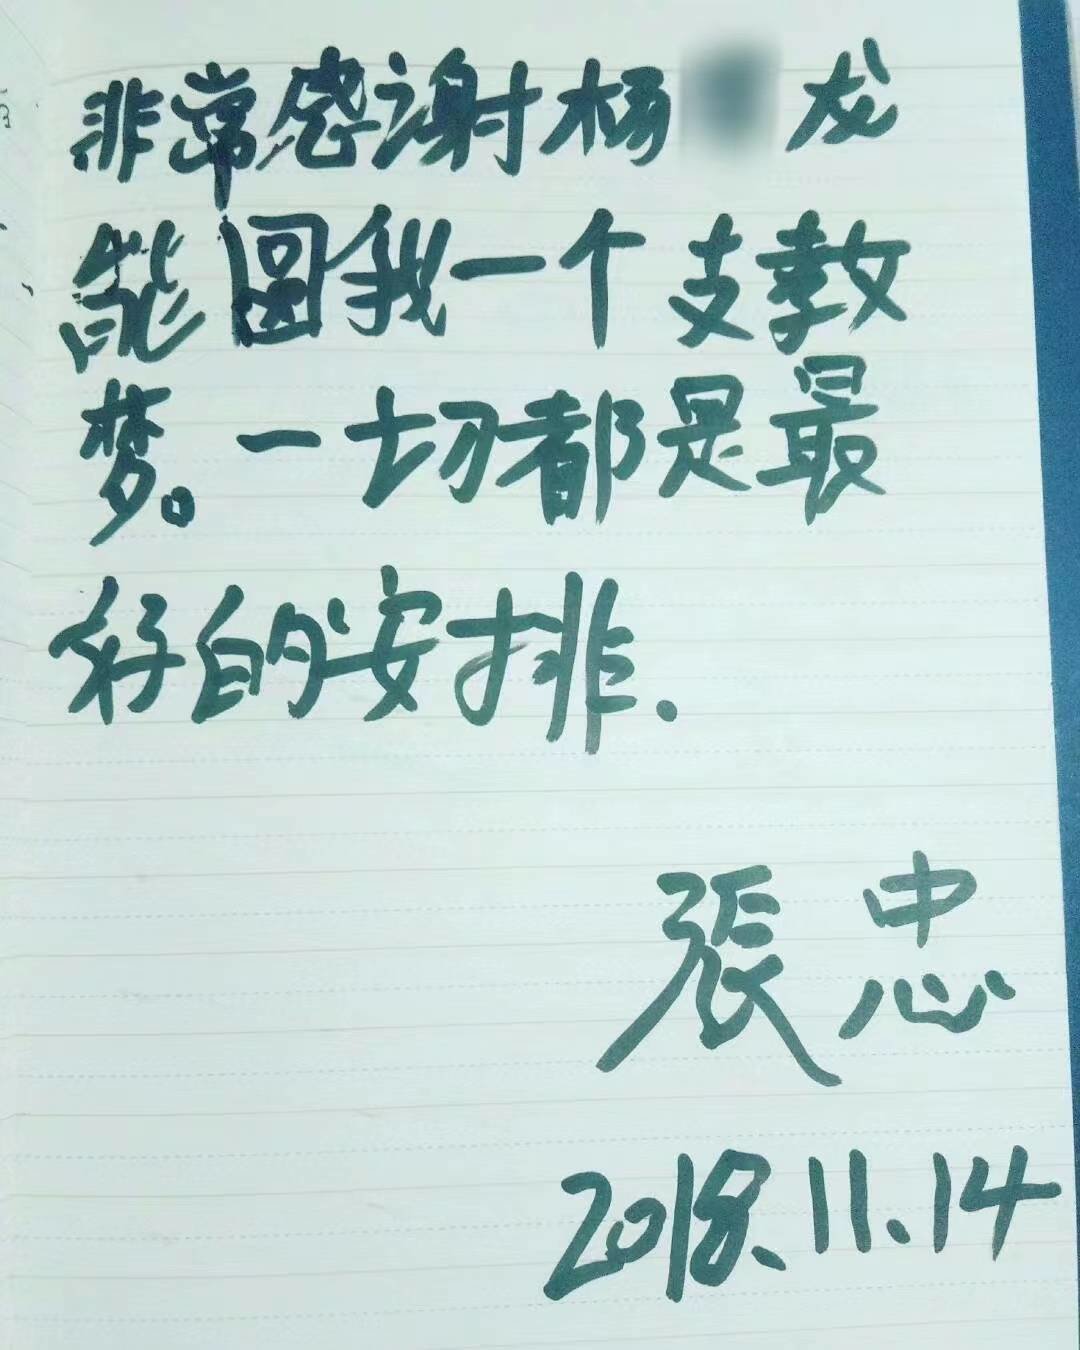 非常感谢杨 龙
能圆我一个支教
梦。一切都是最
好的安排.
張忠
2018.11.14